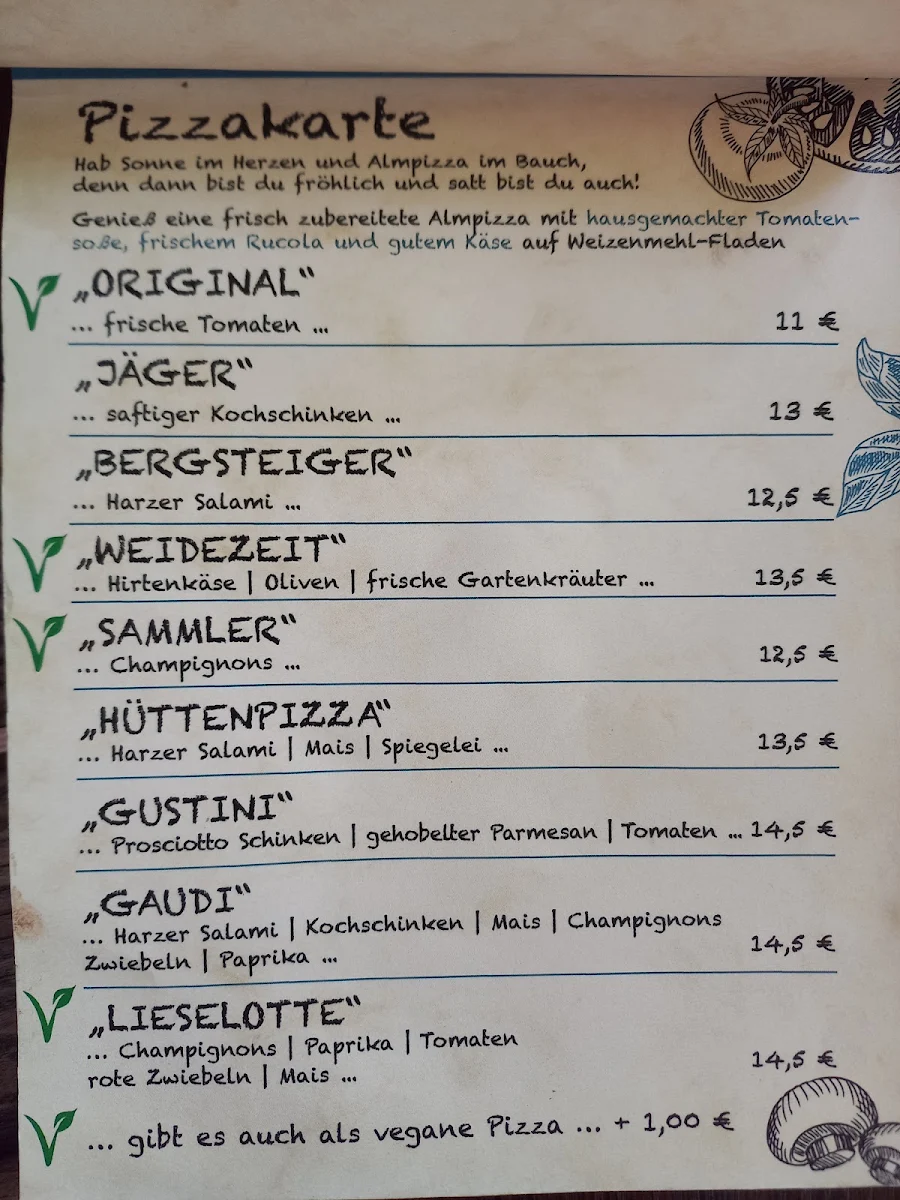 Pizzakarte
Hab Sonne im Herzen und Almpizza im Bauch,
denn dann bist du fröhlich und satt bist du auch!
Genieß eine frisch zubereitete Almpizza mit hausgemachter Tomaten-
soße, frischem Rucola und gutem Käse auf Weizenmehl-Fladen
„ORIGINAL“
... frische Tomaten ... 11 €
„JÄGER“
... saftiger Kochschinken ... 13 €
„BERGSTEIGER“
... Harzer Salami ... 12,5 €
„WEIDEZEIT“
... Hirtenkäse | Oliven | frische Gartenkräuter ... 13,5 €
„SAMMLER“
... Champignons ... 12,5 €
„HÜTTENPIZZA“
... Harzer Salami | Mais | Spiegelei ... 13,5 €
„GUSTINI“
... Prosciotto Schinken | gehobelter Parmesan | Tomaten ... 14,5 €
„GAUDI“
... Harzer Salami | Kochschinken | Mais | Champignons
Zwiebeln | Paprika ... 14,5 €
„LIESELOTTE“
... Champignons | Paprika | Tomaten
rote Zwiebeln | Mais ... 14,5 €
... gibt es auch als vegane Pizza ... + 1,00 €